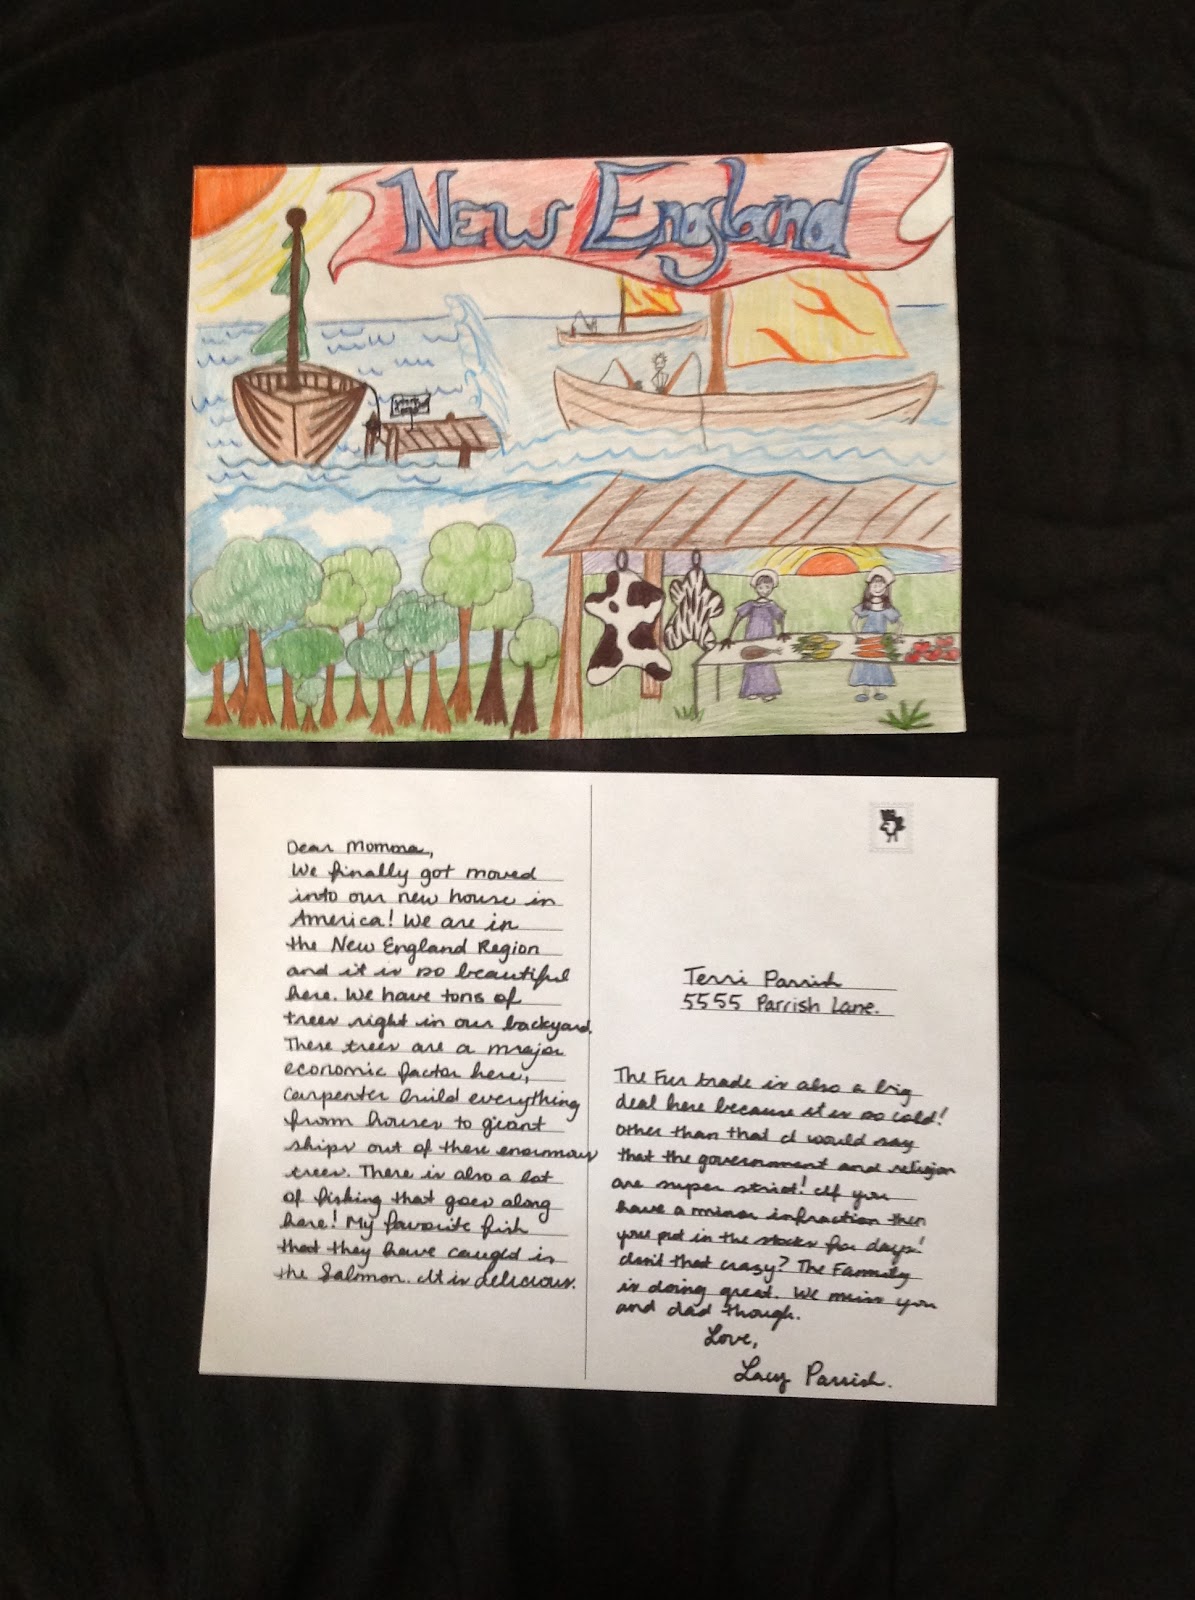 New England
Dear Momma,
We finally got moved
into our new house in
America! We are in
the New England Region
and it is so beautiful
here. We have tons of
trees right in our backyard.
These trees are a major
economic factor here,
Carpenter build everything
from houses to giant
ships out of these enormous
trees. There is also a lot
of fishing that goes along
here! My favorite fish
that they have caughed is
the Salmon. It is delicious.
Terri Parrish
5555 Parrish Lane.
The Fur trade is also a big
deal here because it is so cold!
Other than that I would say
that the government and religion
are super strict! If you
have a minor infraction then
your put in the stocks for days!
Isn't that crazy? The Family
is doing great. We miss you
and dad though.
Love,
Lacy Parrish.